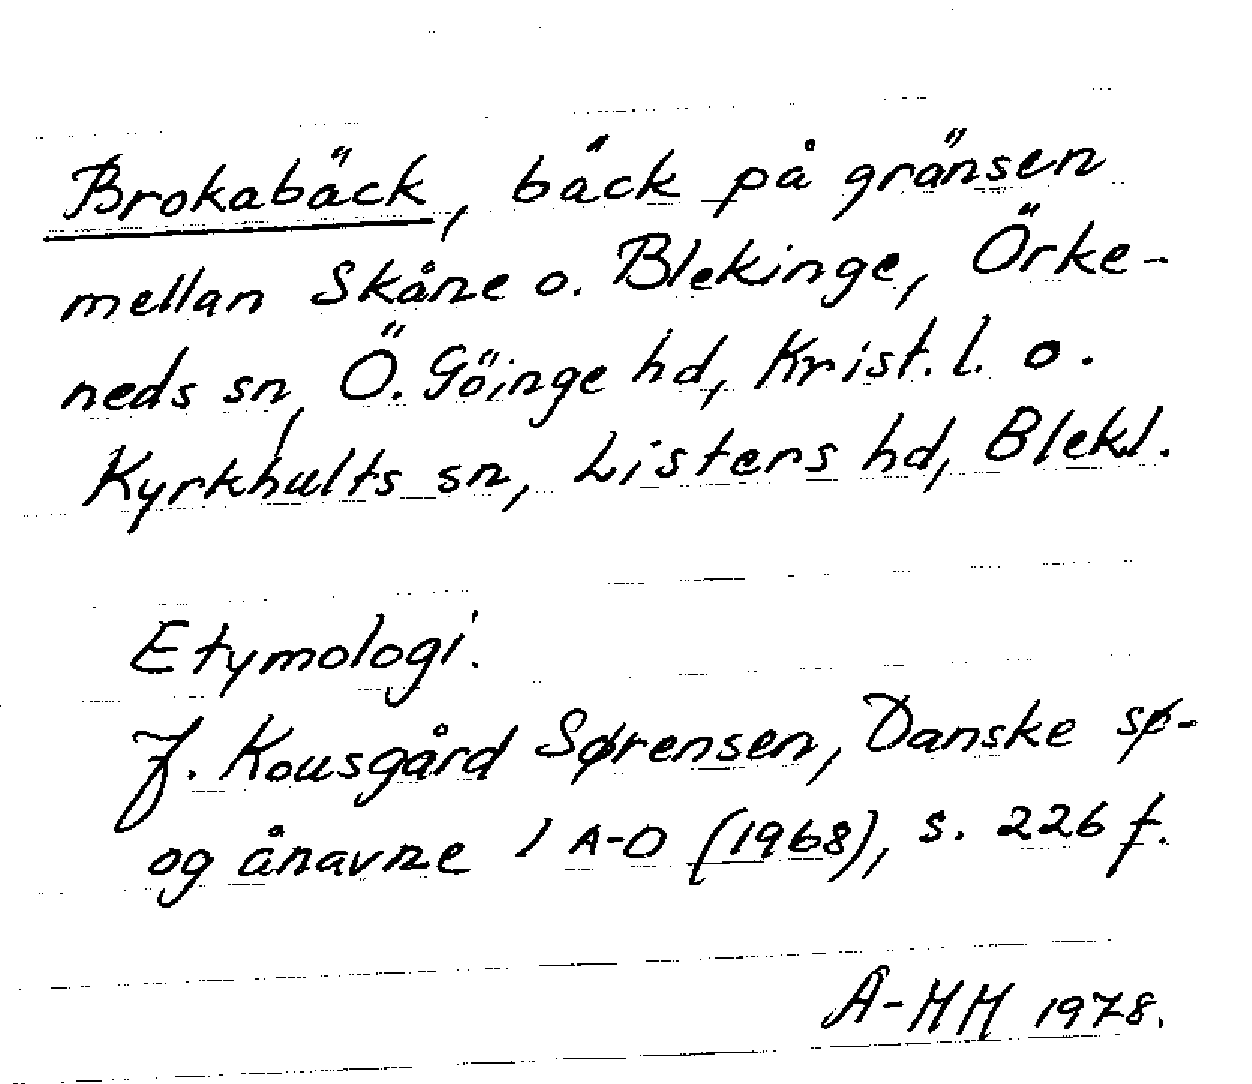 Brokabäck, bäck på gränsen
mellan Skåne o. Blekinge, Örke-
neds sn, Ö. Göinge hd, Krist. l. o.
Kyrkhults sn, Listers hd, Blekl.
Etymologi.
J. Kousgård Sørensen, Danske sø-
og ånavne 1 A-D (1968), s. 226 f.
A-HH 1978.